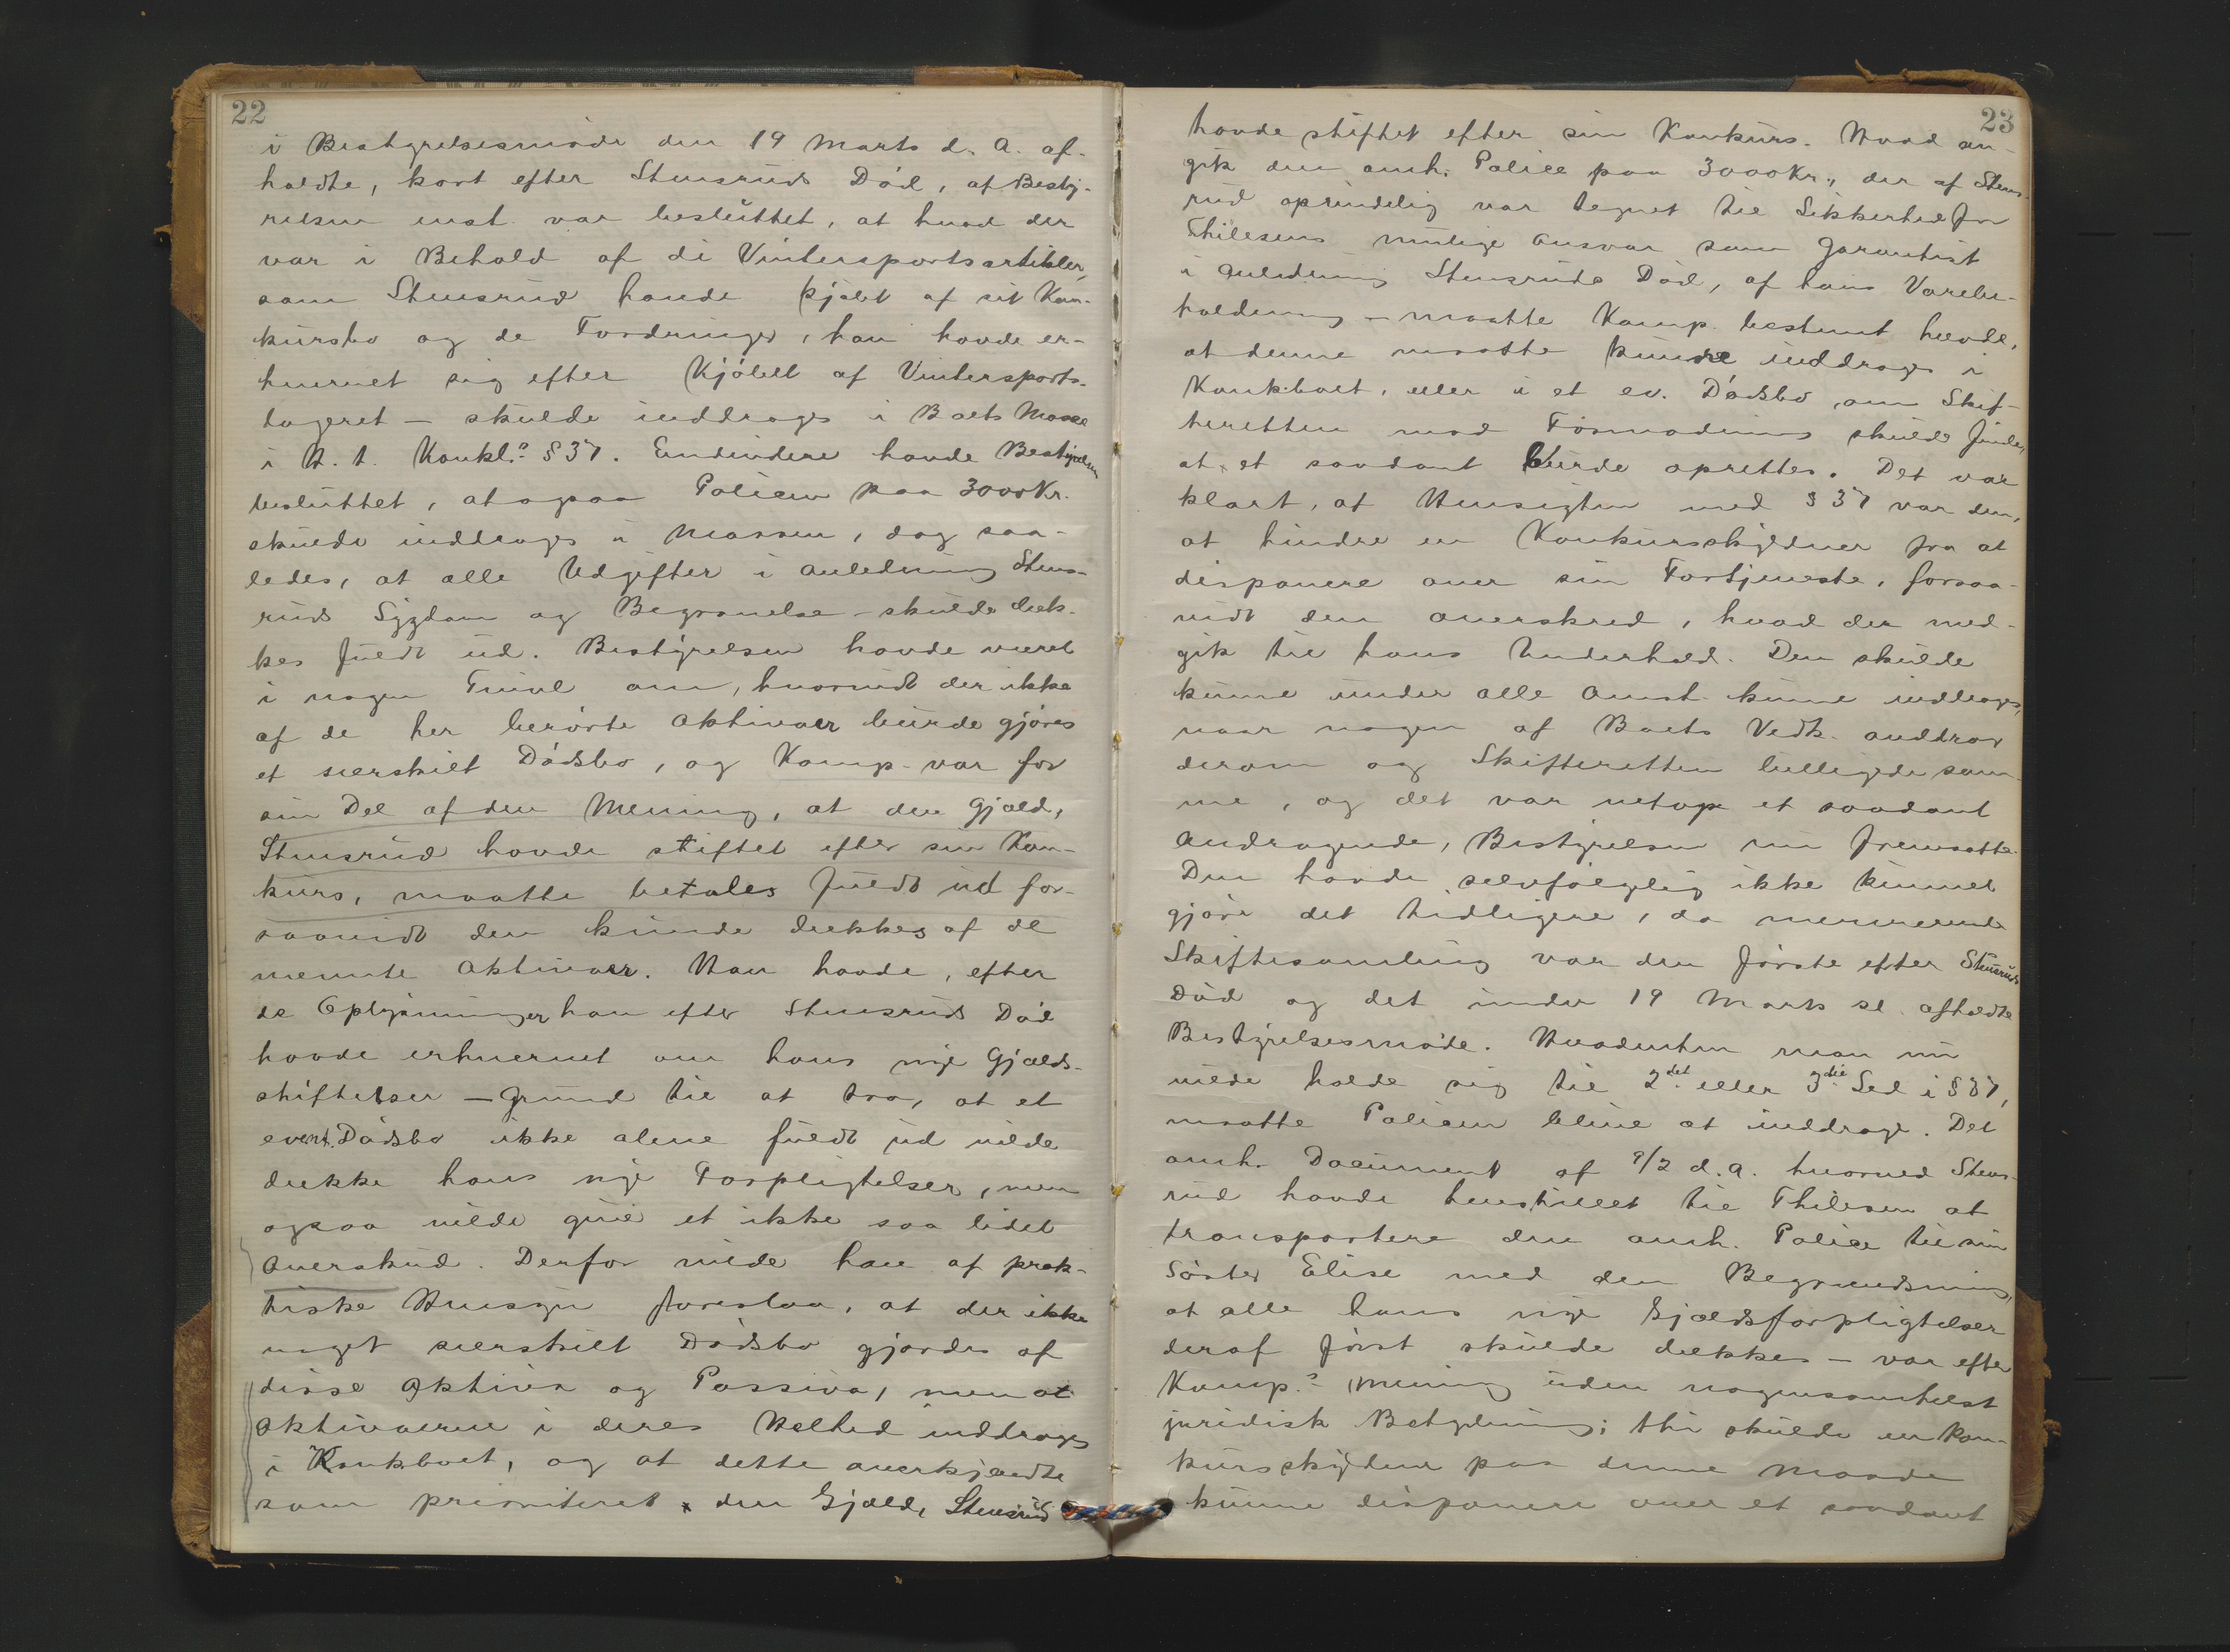 22
i Bestyrelsesmøde den 19 Marts d. A. af-
holdte, kort efter Stensruds Död, af Besty-
relsen enst. var besluttet, at hvad der
var i Behold af de Vintersportsartikler,
som Stensrud havde kjøbt af sit Kon-
kursbo og de Fordringer, han havde er-
hvervet sig efter Kjøbet af Vintersports-
lageret – skulde inddrages i Boets Masse
i H. t. Konkl.s § 37. Endvidere havde Bestyrelsen
besluttet, at ogsaa Policen paa 3000 Kr.
skulde inddrages i Massen, dog saa-
ledes, at alle Udgifter i Anledning Stens-
ruds Sygdom og Begravelse – skulde dæk-
kes fuldt ud. Bestyrelsen havde været
i nogen Tvivl om, hvorvidt der ikke
af de her berørte Aktivaer burde gjøres
et særskilt Dødsbo, og Komp. var for
sin Del af den Mening, at den Gjæld,
Stensrud havde stiftet efter sin Kon-
kurs, maatte betales fuldt ud for-
saavidt den kunde dækkes af de
nævnte Aktivaer. Han havde, efter
de Oplysninger han efter Stensruds Död
havde erhvervet om hans nye Gjælds-
stiftelser – Grund til at tro, at et
event. Dødsbo ikke alene fuldt ud vilde
dække hans nye Forpligtelser, men
ogsaa vilde give et ikke saa lidet
Overskud. Derfor vilde han af prak-
tiske Hensyn foreslaa, at der ikke
noget særskilt Dødsbo gjordes af
disse Aktiva og Passiva, men at
Aktivaerne i deres Helhed inddroges
i Konkboet, og at dette anerkjendte
som prioriteret den Gjæld, Stensrud
23
havde stiftet efter sin Konkurs. Hvad an-
gik den omh. Police paa 3000 Kr., der af Stens-
rud oprindelig var tegnet til Sikkerhed for
Thilesens mulige Ansvar som Garantist
i Anledning Stensruds Död, af hans Varebe-
holdning – maatte Komp. bestemt hævde,
at denne maatte kunde inddrages i
Konkboet, eller i et ev. Dødsbo, om Skif-
teretten mod Formodning skulde finde,
at et saadant burde oprettes. Det var
klart, at Hensigten med § 37 var den,
at hindre en Konkursskyldner fra at
disponere over sin Fortjeneste, forsaa-
vidt den overskred, hvad der med-
gik til hans Underhold. Den skulde
kunne under alle Omst. kunne inddrages,
naar nogen af Boets Vedk. anddrog
derom og Skifteretten billigede sam-
me, og det var netop et saadant
Andragende, Bestyrelsen nu fremsatte.
Den havde selvfølgelig ikke kunnet
gjøre det tidligere, da nærværende
Skiftesamling var den første efter Stensruds
Död og det under 19 Marts sl. afholdte
Bestyrelsesmøde. Hvadenten man nu
vilde holde sig til 2det eller 3die Led i § 37,
maatte Policen blive at inddrage. Det
omh. Document af 9/2 d. A. hvorved Stens-
rud havde henstillet til Thilesen at
transportere den omh. Police til sin
Søster Elise med den Begrundning,
at alle hans nye Gjældsforpligtelser
deraf først skulde dækkes – var efter
Komp.s Mening uden nogensomhelst
juridisk Betydning; thi skulde en Kon-
kursskyldner paa denne Maade
kunne disponere over et saadant